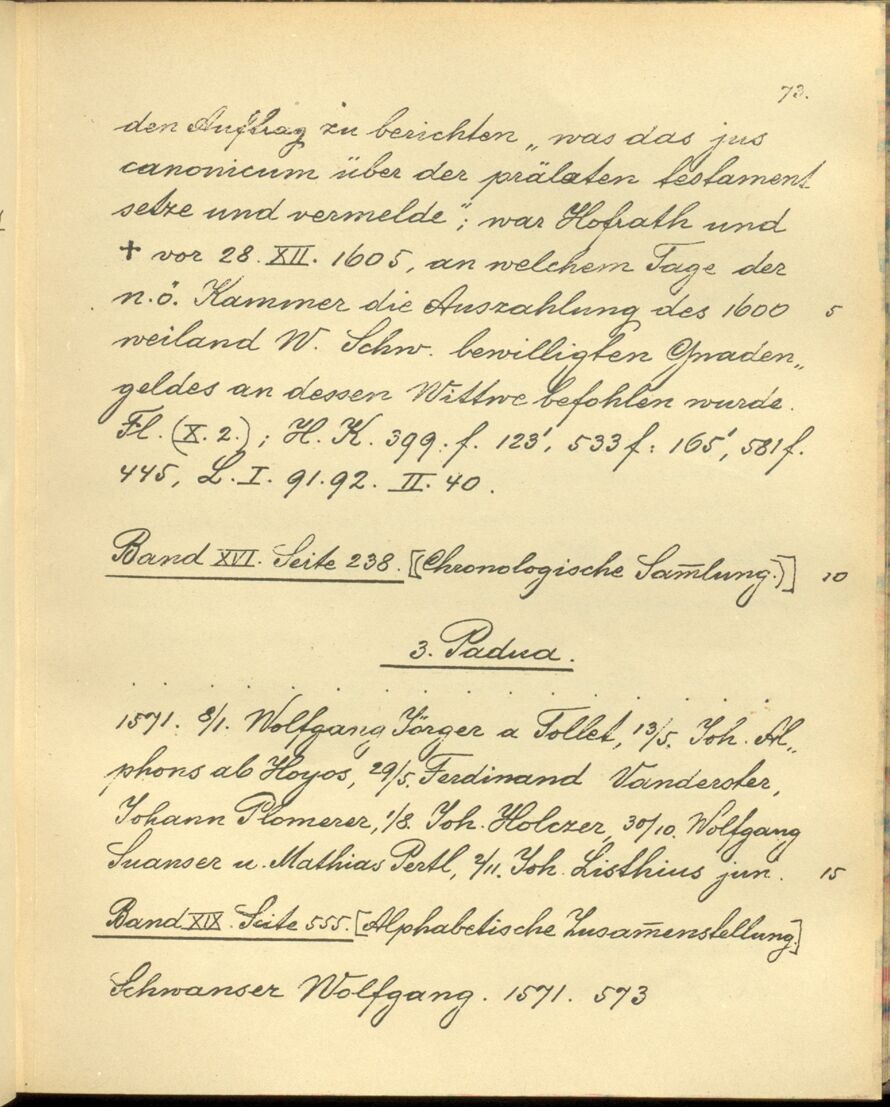 73.
den Auftrag zu berichten „was das jus
canonicum über der prälaten testament
setze und vermelde“; war Hofrath und
† vor 28. XII. 1605, an welchem Tage der
n.ö. Kammer die Auszahlung des 1600 5
weiland W. Schw. bewilligten Gnaden„
geldes an dessen Wittwe befohlen wurde.
Fl. (X. 2.); H. K. 399. f. 123', 533 f: 165', 581 f.
445, L. I. 91.92. II. 40.
Band XVI. Seite 238. [(Chronologische Sam̄lung.)] 10
3. Padua.
1571. 8/1. Wolfgang Jörger a Tollet, 13/5. Joh. Al„
phons ab Hoyos, 29/5. Ferdinand Vanderster,
Johann Plomerer, 1/8. Joh. Holczer, 30/10. Wolfgang
Suanser u. Mathias Pertl, 2/11. Joh. Listhius jun. 15
Band XIX. Seite 555. [Alphabetische Zusam̄enstellung.]
Schwanser Wolfgang. 1571. 573